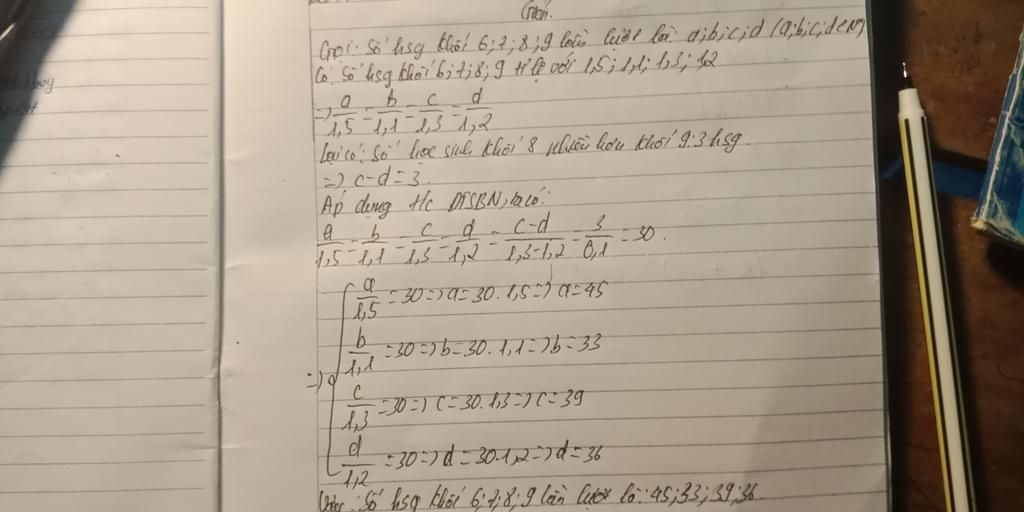 Giải.
Gọi: Số hsg khối 6;7;8;9 lần lượt là a;b;c;d (a;b;c;d∈N*)
Có: Số hsg khối 6;7;8;9 tỉ lệ với 1,5; 1,1; 1,3; 1,2
=> a/1,5 = b/1,1 = c/1,3 = d/1,2
Lại có: Số học sinh khối 8 nhiều hơn khối 9: 3 hsg
=> c-d=3.
Áp dụng t/c DTSBN, ta có:
a/1,5 = b/1,1 = c/1,3 = d/1,2 = c-d/1,3-1,2 = 3/0,1 = 30.
a/1,5 = 30 => a = 30.1,5 => a = 45
b/1,1 = 30 => b = 30.1,1 => b = 33
=> c/1,3 = 30 => c = 30.1,3 => c = 39
d/1,2 = 30 => d = 30.1,2 => d = 36
Vậy: Số hsg khối 6;7;8;9 lần lượt là: 45;33;39;36.